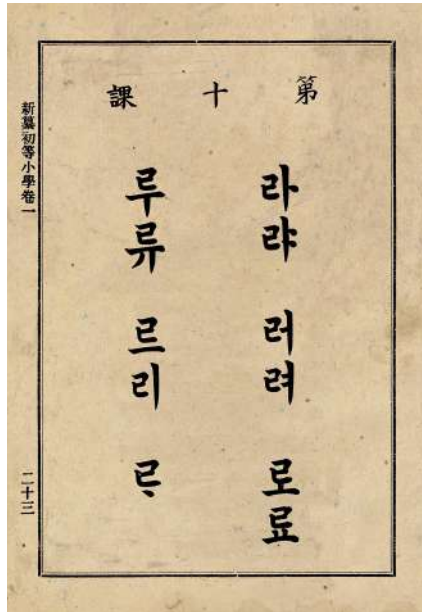 第十課
라랴 러려 로료
루류 르리 ᄅᆞ
新纂初等小學卷一
二十三